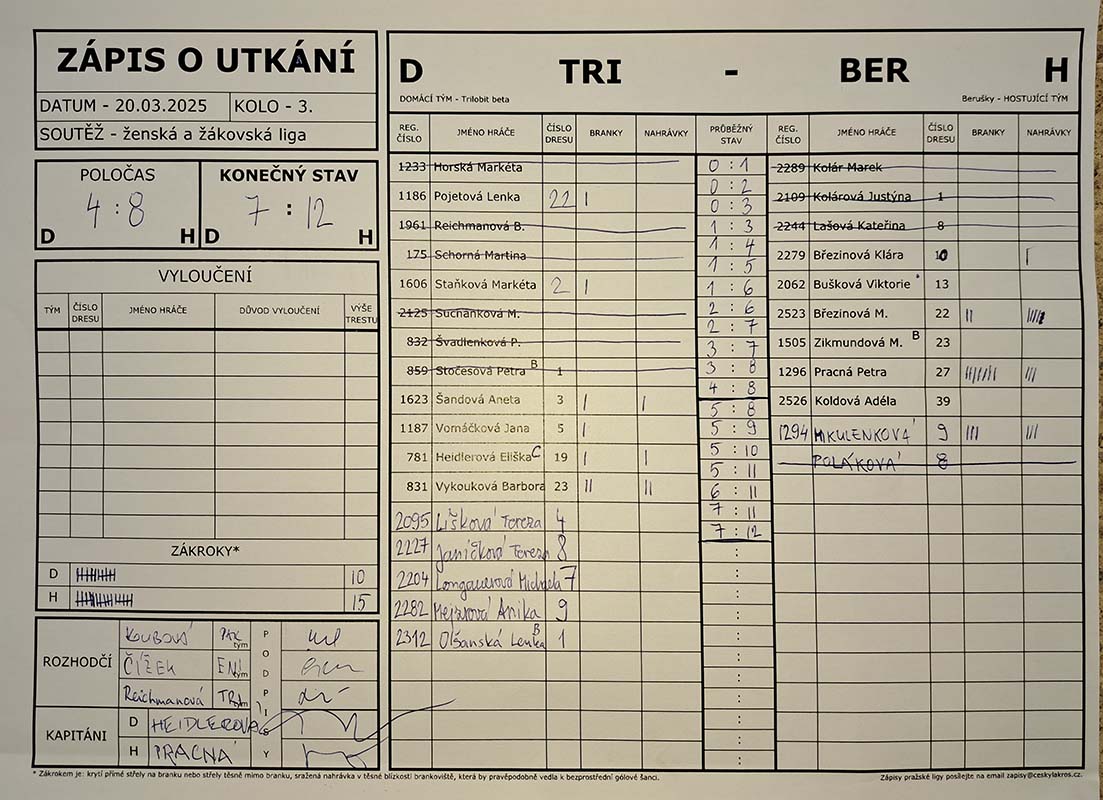 ZÁPIS O UTKÁNÍ
DATUM - 20.03.2025 KOLO - 3.
SOUTĚŽ - ženská a žákovská liga
POLOČAS KONEČNÝ STAV
4 : 8 7 : 12
D H D H
VYLOUČENÍ
TÝM ČÍSLO DRESU JMÉNO HRÁČE DŮVOD VYLOUČENÍ VÝŠE TRESTU
ZÁKROKY*
D 10
H 15
ROZHODČÍ
KOUBOVÁ PAK tým
ČÍŽEK ENI tým
Reichmanová TRI tým
PODPISY
KAPITÁNI
D HEIDLEROVÁ
H PRACNÁ
D TRI - BER H
DOMÁCÍ TÝM - Trilobit beta Berušky - HOSTUJÍCÍ TÝM
REG. ČÍSLO JMÉNO HRÁČE ČÍSLO DRESU BRANKY NAHRÁVKY PRŮBĚŽNÝ STAV REG. ČÍSLO JMÉNO HRÁČE ČÍSLO DRESU BRANKY NAHRÁVKY
1233 Horská Markéta
1186 Pojetová Lenka 22 I
1961 Reichmanová B.
175 Schorná Martina
1606 Staňková Markéta 2 I
2125 Suchánková M.
832 Švadlenková P.
859 Stočesová Petra B 1
1623 Šandová Aneta 3 I I
1187 Vornáčková Jana 5 I
781 Heidlerová Eliška C 19 I I
831 Vykouková Barbora 23 II II
2095 Lišková Tereza 4
2227 Janíčková Tereza 8
2204 Longauerová Michaela 7
2282 Mejzrová Anika 9
2312 Olšanská Lenka B 1
0 : 1
0 : 2
0 : 3
1 : 3
1 : 4
1 : 5
1 : 6
2 : 6
2 : 7
3 : 7
3 : 8
4 : 8
5 : 8
5 : 9
5 : 10
5 : 11
6 : 11
7 : 11
7 : 12
2289 Kolár Marek
2109 Kolárová Justýna 1
2244 Lašová Kateřina 8
2279 Březinová Klára 10 I
2062 Bušková Viktorie 13
2523 Březinová M. 22 II
1505 Zikmundová M. B 23
1296 Pracná Petra 27 III
2526 Koldová Adéla 39
1294 MIKULENKOVÁ 9 III III
POLÁKOVÁ 8
* Zákrokem je: krytí přímé střely na branku nebo střely těsně mimo branku, sražená nahrávka v těsné blízkosti brankoviště, která by pravěpodobně vedla k bezprostřední gólové šanci.
Zápisy pražské ligy posílejte na email zapisy@ceskylakros.cz.